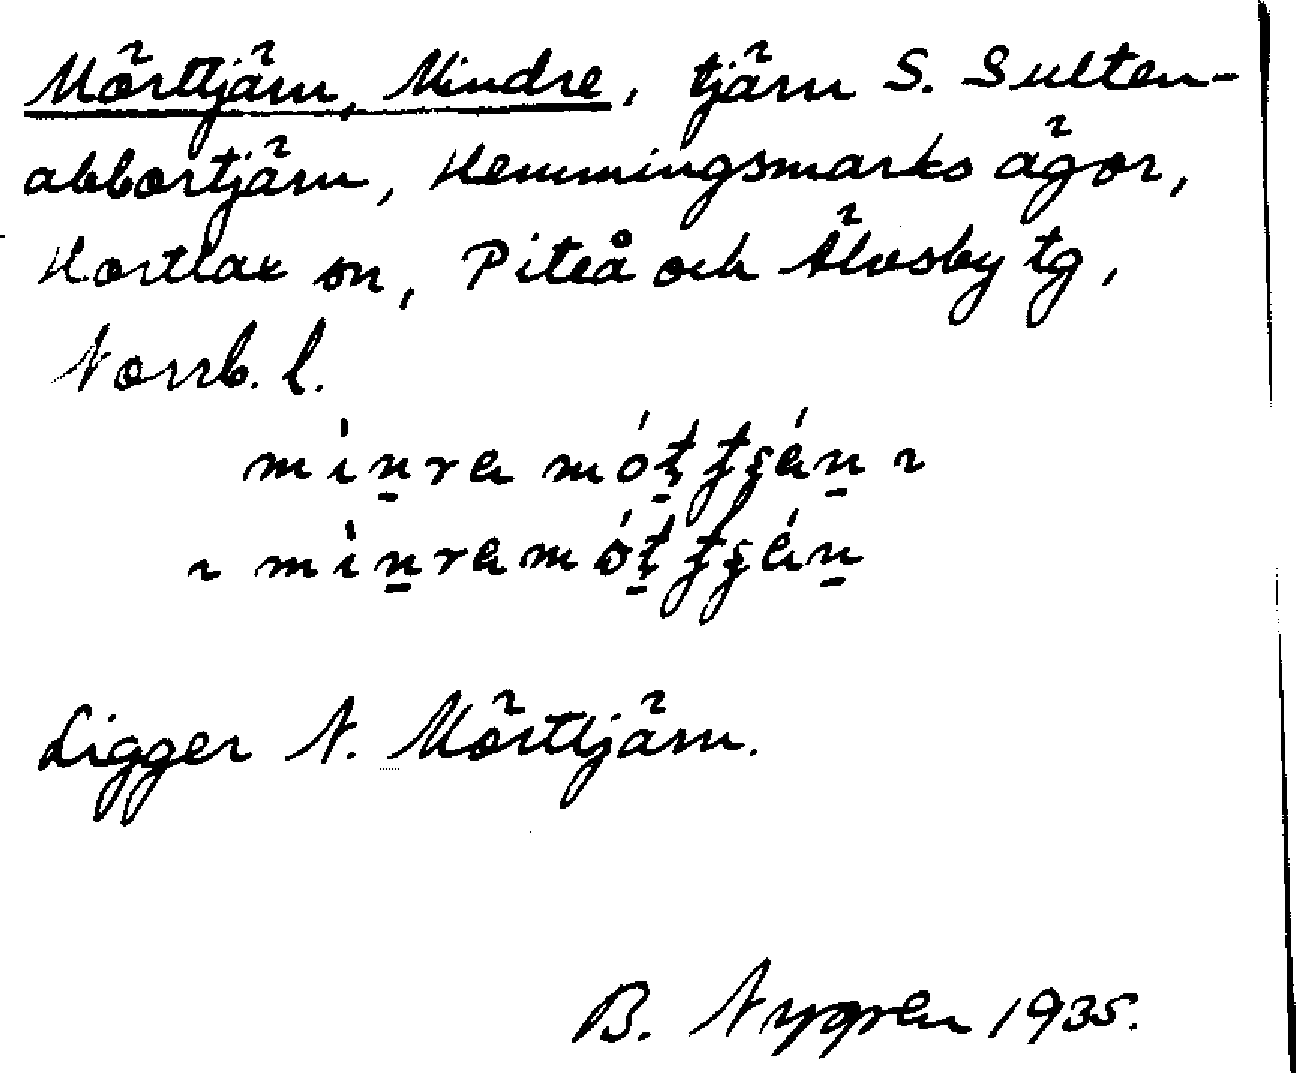 Mörttjärn, Mindre, tjärn S. Sulten-
abbortjärn, Hemmingsmarks ägor,
Hortlax sn, Piteå och Älvsby tg,
Norrb. l.
Ligger N. Mörttjärn.
B. Nygren 1935.